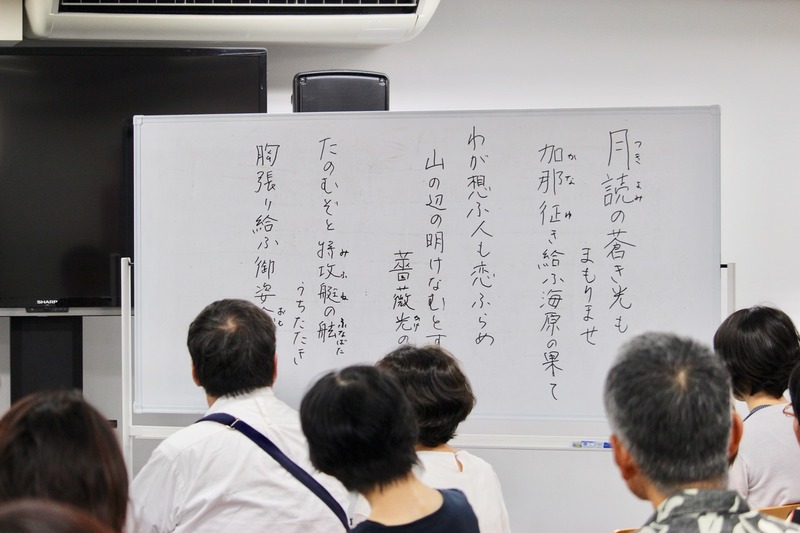 つき よみ
月読の蒼き光も
まもりませ
かな ゆ
加那征き給ふ海原の果て
わが想ふ人も恋ふらめ
山の辺の明けなむとす
薔薇光の
みふね ふなばた
たのむぞと特攻艇の舷
うちたたき
胸張り給ふ御姿
SHARP